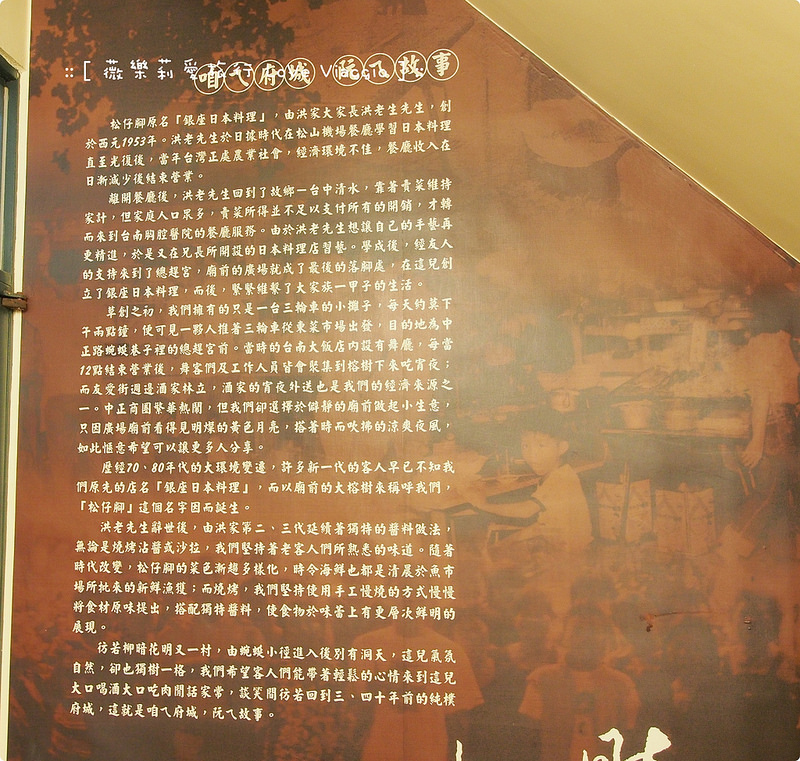 ::[ 薇樂莉愛旅行 Love Viaggio ]::
咱ㄟ府城 阮ㄟ故事
松仔腳原名『銀座日本料理』，由洪家大家長洪老生先生，創
於西元1953年。洪老先生於日據時代在松山機場餐廳學習日本料理
直至光復後，當年台灣正處農業社會，經濟環境不佳，餐廳收入在
日漸減少後結束營業。
離開餐廳後，洪老先生回到了故鄉－台中清水，靠著賣菜維持
家計，但家庭人口眾多，賣菜所得並不足以支付所有的開銷，才轉
而來到台南胸腔醫院的餐廳服務。由於洪老先生想讓自己的手藝再
更精進，於是又在兄長所開設的日本料理店習藝。學成後，經友人
的支持來到了總趕宮，廟前的廣場就成了最後的落腳處，在這兒創
立了銀座日本料理，而後，緊緊維繫了大家族一甲子的生活。
草創之初，我們擁有的只是一台三輪車的小攤子，每天約莫下
午兩點鐘，便可見一夥人推著三輪車從東菜市場出發，目的地為中
正路蜿蜒巷子裡的總趕宮前。當時的台南大飯店內設有舞廳，每當
12點結束營業後，舞客們及工作人員皆會聚集到榕樹下來吃宵夜；
而友愛街週邊酒家林立，酒家的宵夜外送也是我們的經濟來源之
一。中正商圈繁華熱鬧，但我們卻選擇於僻靜的廟前做起小生意，
只因廣場廟前看得見明燦的黃色月亮，搭著時而吹拂的涼爽夜風，
如此愜意希望可以讓更多人分享。
歷經70、80年代的大環境變遷，許多新一代的客人早已不知我
們原先的店名『銀座日本料理』，而以廟前的大榕樹來稱呼我們，
『松仔腳』這個名字因而誕生。
洪老先生辭世後，由洪家第二、三代延續著獨特的醬料做法，
無論是燒烤沾醬或沙拉，我們堅持著老客人們所熟悉的味道。隨著
時代改變，松仔腳的菜色漸趨多樣化，時令海鮮也都是清晨於魚市
場所批來的新鮮漁獲；而燒烤，我們堅持使用手工慢燒的方式慢慢
將食材原味提出，搭配獨特醬料，使食物於味蕾上有更層次鮮明的
展現。
彷若柳暗花明又一村，由蜿蜒小徑進入後別有洞天，這兒氣氛
自然，卻也獨樹一格，我們希望客人們能帶著輕鬆的心情來到這兒
大口喝酒大口吃肉閒話家常，談笑間彷若回到三、四十年前的純樸
府城，這就是咱ㄟ府城，阮ㄟ故事。